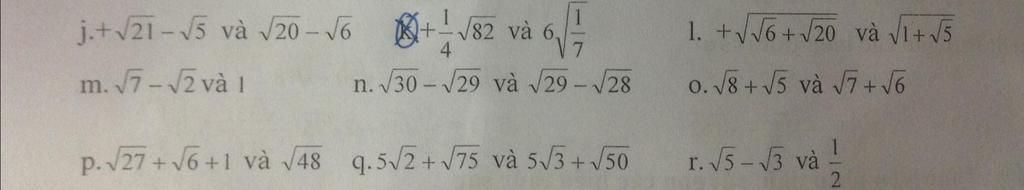 j.+√21 − √5 và √20 − √6 k+1/4√82 và 6√(1/7) l. +√(√6+√20) và √(1+√5)
m. √7 − √2 và 1 n. √30 − √29 và √29 − √28 o. √8 + √5 và √7 + √6
p. √27 + √6 + 1 và √48 q. 5√2 + √75 và 5√3 + √50 r. √5 − √3 và 1/2